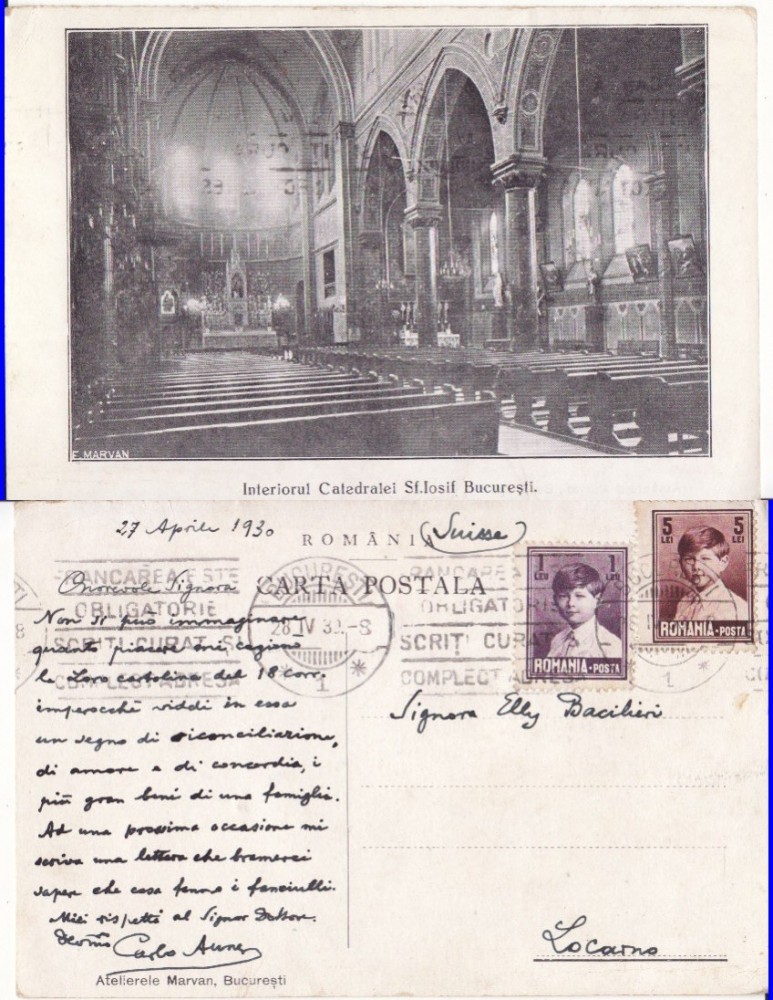 F. MARVAN
Interiorul Catedralei Sf.Iosif București.
27 Aprile 1930
ROMÂNIA
(Suisse)
CARTA POSTALA
FRANCAREA ESTE
OBLIGATORIE
SCRIȚI CURAT ȘI
COMPLECT ADRESA
BUCUREȘTI
28 IV 30-8
1
FRANCAREA ESTE
OBLIGATORIE
SCRIȚI CURAT ȘI
COMPLECT ADRESA
1
1 LEU 1 LEU
ROMÂNIA-POSTA
5 LEI 5 LEI
ROMÂNIA-POSTA
Onorevole Signora
Non si può immaginare
quanto piacere mi cagionò
la Loro cartolina del 18 corr.
imperocchè viddi in essa
un segno di riconciliazione,
di amore e di concordia, i
più gran beni di una famiglia.
Ad una prossima occasione mi
scriva una lettera che bramerei
sapere che cosa fanno i fanciulli.
Miei rispetti al Signor Dottore.
Carlo Auner
Signora Elly Bacilieri
Locarno
Atelierele Marvan, București